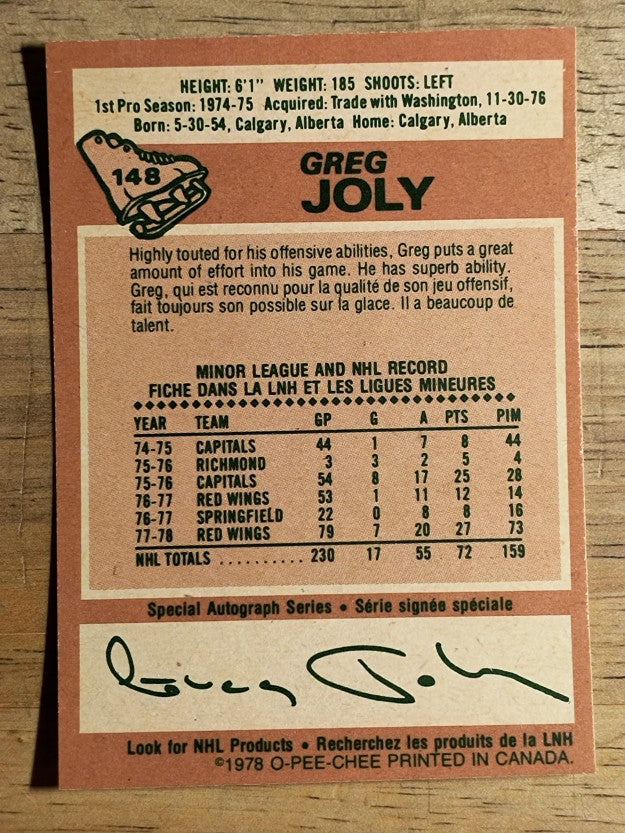 HEIGHT: 6'1" WEIGHT: 185 SHOOTS: LEFT
1st Pro Season: 1974-75 Acquired: Trade with Washington, 11-30-76
Born: 5-30-54, Calgary, Alberta Home: Calgary, Alberta
148
GREG
JOLY
Highly touted for his offensive abilities, Greg puts a great
amount of effort into his game. He has superb ability.
Greg, qui est reconnu pour la qualité de son jeu offensif,
fait toujours son possible sur la glace. Il a beaucoup de
talent.
MINOR LEAGUE AND NHL RECORD
FICHE DANS LA LNH ET LES LIGUES MINEURES
YEAR TEAM GP G A PTS PIM
74-75 CAPITALS 44 1 7 8 44
75-76 RICHMOND 3 3 2 5 4
75-76 CAPITALS 54 8 17 25 28
76-77 RED WINGS 53 1 11 12 14
76-77 SPRINGFIELD 22 0 8 8 16
77-78 RED WINGS 79 7 20 27 73
NHL TOTALS .......... 230 17 55 72 159
Special Autograph Series • Série signée spéciale
Greg Joly
Look for NHL Products • Recherchez les produits de la LNH
©1978 O-PEE-CHEE PRINTED IN CANADA.